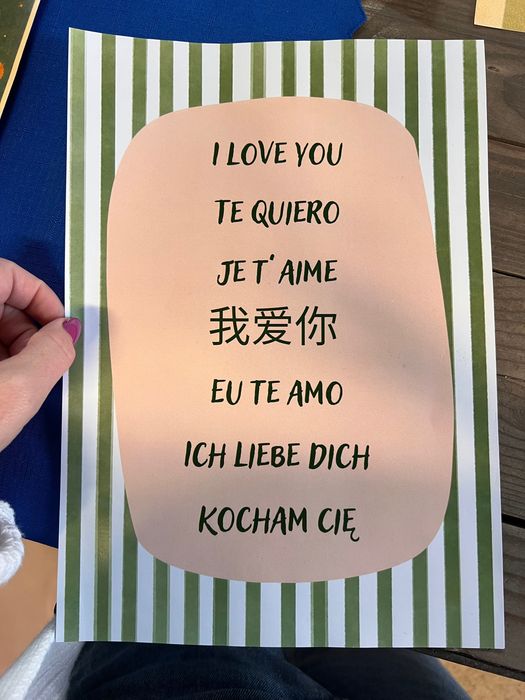 I LOVE YOU
TE QUIERO
JE T' AIME
我爱你
EU TE AMO
ICH LIEBE DICH
KOCHAM CIĘ